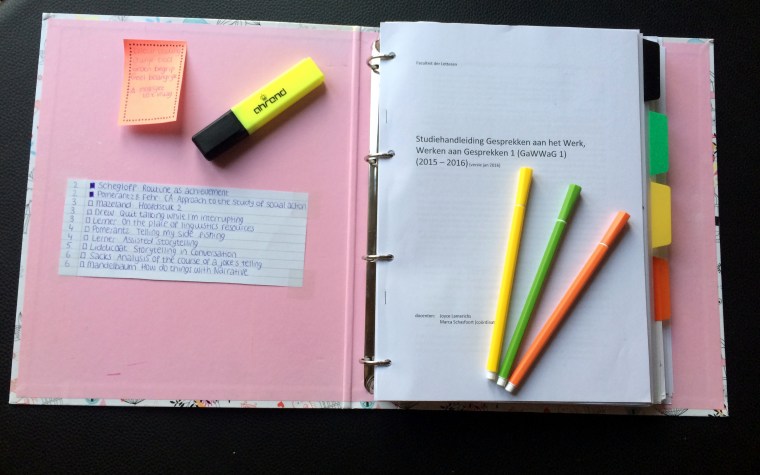 ahrend
1 Schegloff Routine as achievement
2 Pomerantz & Fehr CA Approach to the study of social action
3 Maseland Hoofdstuk 2
3 Drew Quit talking while I'm interrupting
3 Lerner On the place of linguistics resources
4 Pomerantz Telling my side, fishing
4 Lerner Assisted Storytelling
5 Liddicoat Storytelling in Conversation
6 Sacks Analysis of the course of a joke's telling
6 Mandelbaum How do things with Narrative
Faculteit der Letteren
Studiehandleiding Gesprekken aan het Werk,
Werken aan Gesprekken 1 (GaWWaG 1)
(2015 – 2016) (versie jan 2016)
docenten: Joyce Lamerichs